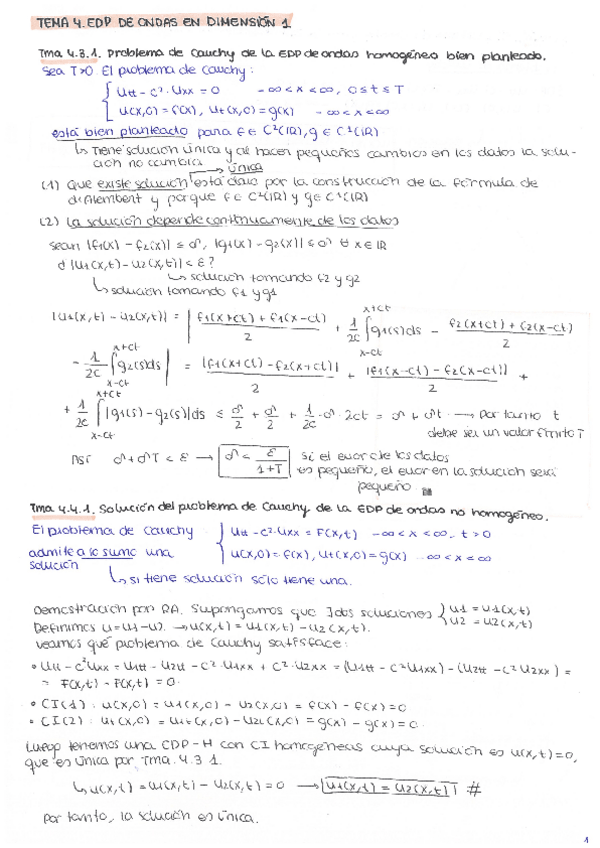 TEMA 4. EDP DE ONDAS EN DIMENSIÓN 1.
Tma 4.3.1. Problema de Cauchy de la EDP de ondas homogéneo bien planteado.
Sea T>0. El problema de Cauchy:
{ Utt - c²·Uxx = 0 -∞<x<∞, 0≤t≤T
U(x,0) = f(x), Ut(x,0) = g(x) -∞<x<∞
está bien planteado para f∈C²(ℝ), g∈C¹(ℝ)
↳ Tiene solución única y al hacer pequeños cambios en los datos la solu-
ción no cambia → única
(1) Que existe solución está claro por la construcción de la fórmula de
d'Alembert y porque f∈C²(ℝ) y g∈C¹(ℝ)
(2) La solución depende continuamente de los datos
sean |f1(x) - f2(x)| ≤ δ, |g1(x) - g2(x)| ≤ δ ∀x∈ℝ
d|U1(x,t) - U2(x,t)| < ε?
↳ solución tomando f2 y g2
↳ solución tomando f1 y g1
|U1(x,t) - U2(x,t)| = | (f1(x+ct) + f1(x-ct))/2 + 1/2c ∫_{x-ct}^{x+ct} g1(s)ds - (f2(x+ct) + f2(x-ct))/2
- 1/2c ∫_{x-ct}^{x+ct} g2(s)ds | = |f1(x+ct) - f2(x+ct)|/2 + |f1(x-ct) - f2(x-ct)|/2 +
+ 1/2c ∫_{x-ct}^{x+ct} |g1(s) - g2(s)|ds ≤ δ/2 + δ/2 + 1/2c·δ·2ct = δ + δt → Por tanto t
debe ser un valor finito T
Así δ + δT < ε → δ < ε/(1+T) si el error de los datos
es pequeño, el error en la solución será
pequeño.
Tma 4.4.1. Solución del problema de Cauchy de la EDP de ondas no homogéneo.
El problema de Cauchy { Utt - c²·Uxx = F(x,t) -∞<x<∞, t>0
admite a lo sumo una U(x,0) = f(x), Ut(x,0) = g(x) -∞<x<∞
solución
↳ si tiene solución sólo tiene una.
Demostración por RA. Supongamos que ∃ dos soluciones { U1 = U1(x,t)
Definimos U = U1 - U2. → U(x,t) = U1(x,t) - U2(x,t). U2 = U2(x,t)
veamos qué problema de Cauchy satisface:
• Utt - c²Uxx = U1tt - U2tt - c²·U1xx + c²·U2xx = (U1tt - c²U1xx) - (U2tt - c²U2xx) =
= F(x,t) - F(x,t) = 0.
• CI(1): U(x,0) = U1(x,0) - U2(x,0) = f(x) - f(x) = 0
• CI(2): Ut(x,0) = U1t(x,0) - U2t(x,0) = g(x) - g(x) = 0.
Luego tenemos una EDP-H con CI homogéneas cuya solución es U(x,t)=0,
que es única por Tma. 4.3.1.
↳ U(x,t) = U1(x,t) - U2(x,t) = 0 → U1(x,t) = U2(x,t) #
Por tanto, la solución es única.
1